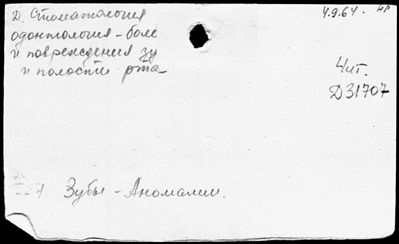 Д. Стоматология
4.9.64.
одонтология - боле
и повреждения зу
и полости рта
Чит.
Д31707
7. Зубы - Аномалии.